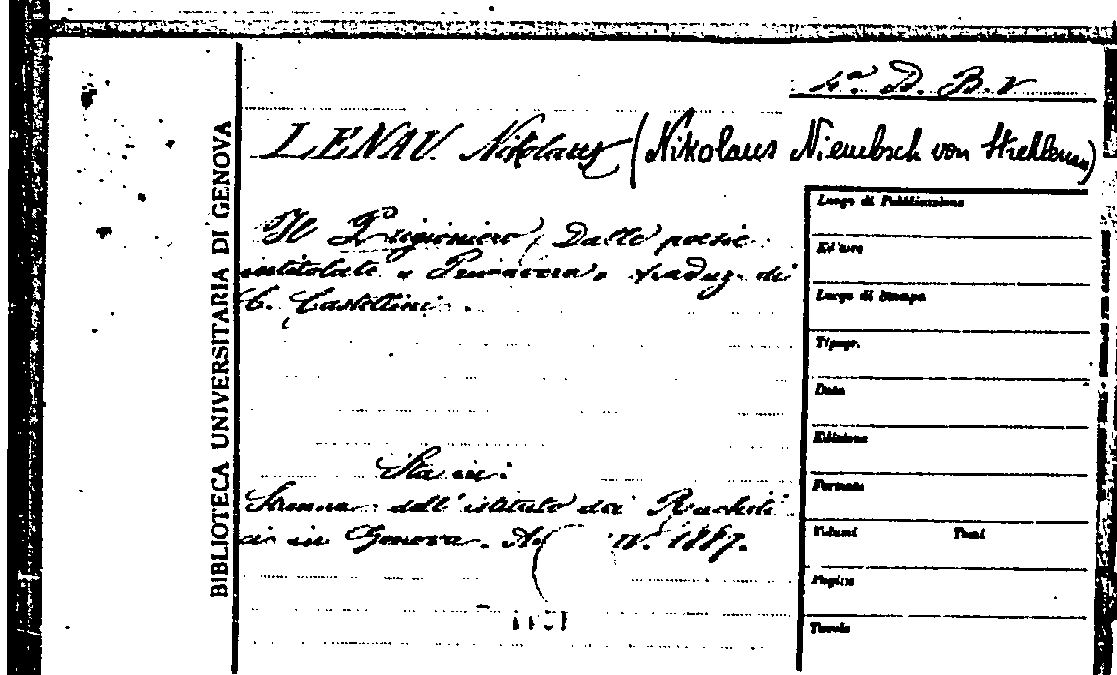 4ª D. B. V
LENAU Nikolaus (Nikolaus Niembsch von Strehlenau)
Il Prigioniero, Dalle poesie
intitolate « Primavera » traduz. di
C. Castellini.
Sta in:
Strenna dell'istituto dei Rachiti
ci in Genova. A. IV. 1887.
BIBLIOTECA UNIVERSITARIA DI GENOVA
Luogo di Pubblicazione
Editore
Luogo di Stampa
Tipogr.
Data
Edizione
Formato
Volumi Tomi
Pagine
Tavole